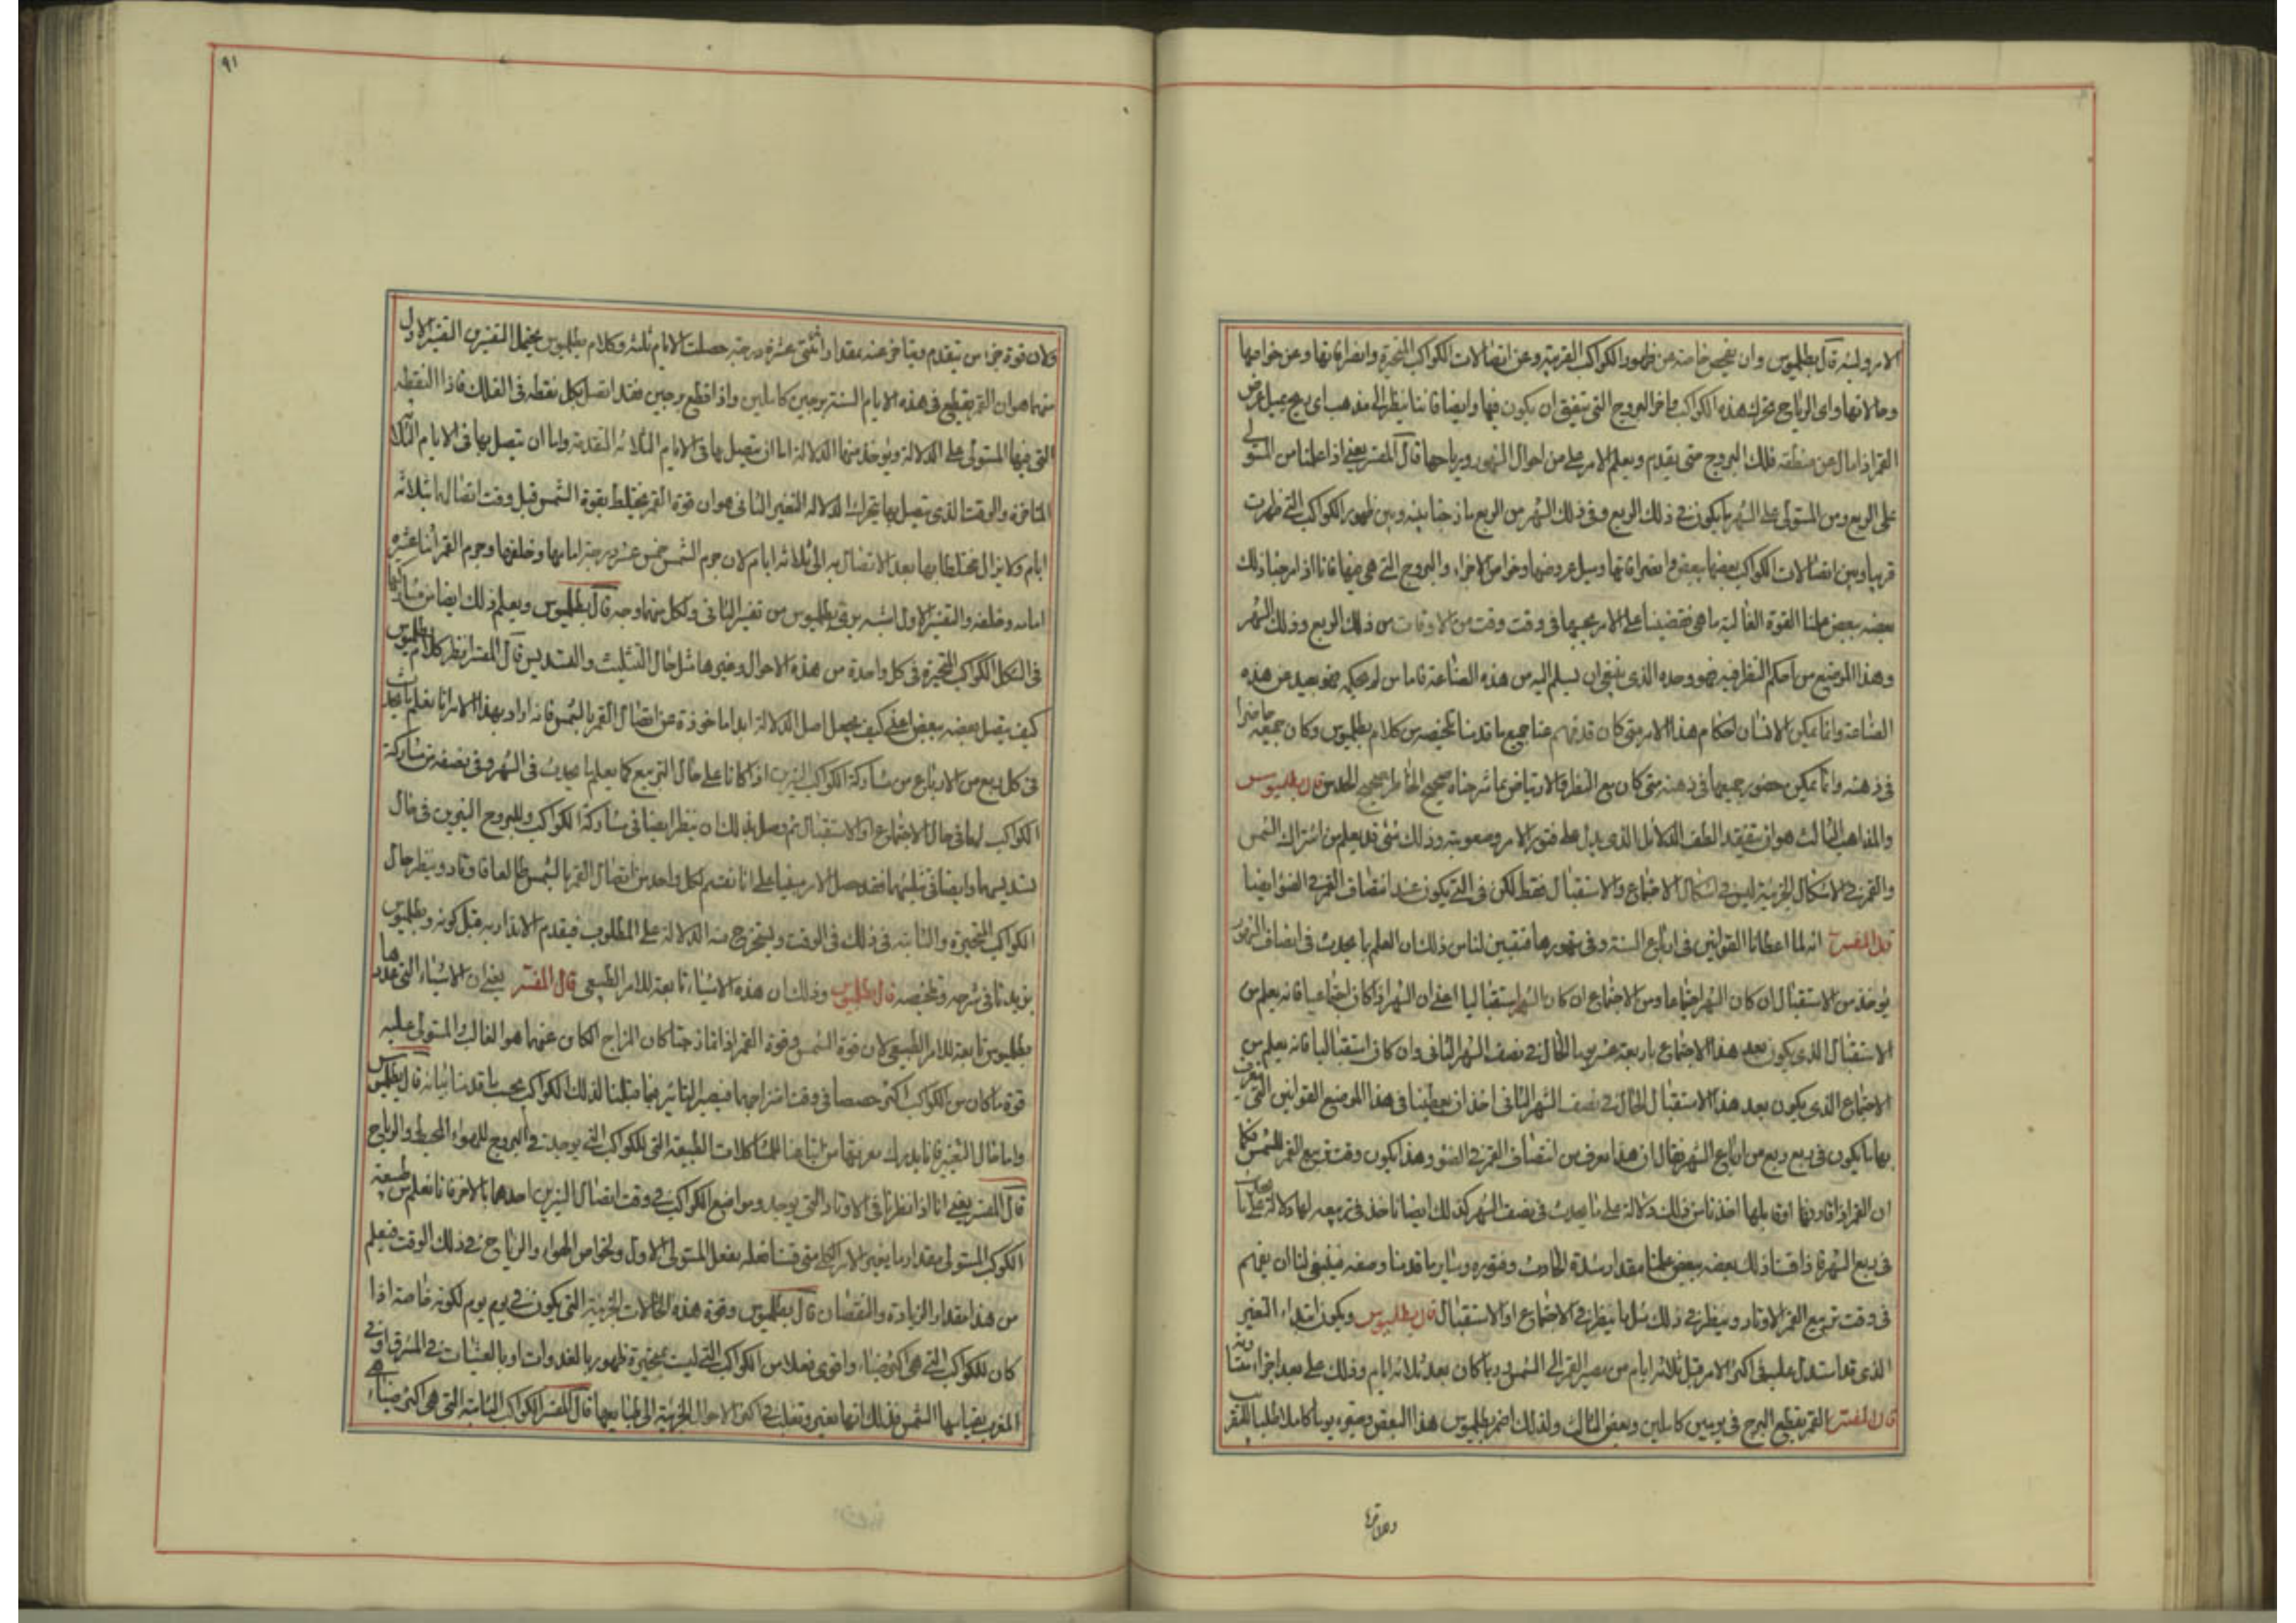 الامر وليته قال بطلميوس وان يفحص خاصة عن ظهور الكواكب القريبة وعن اتصالات الكواكب المتحيرة وانصرافاتها وعن خواصها
وحالاتها واى الرياح تحرك هذه الكواكب واجزا البروج التى يتفق ان يكون فيها وايضا فاننا ننظر الى مذهب اى ريح يميل عرض
القمر اذا مال عن منطقة فلك البروج حتى يقدم ويعلم الامر على من احوال الشهور ورياحها قال المفسر يعنى اذا علمنا من المستولى
على الربع ومن المستولى على الشهر ما يكون فى ذلك الربع وفى ذلك الشهر من الربع مازجنا بينه وبين ظهور الكواكب التى ظهرت
قريبا وبين اتصالات الكواكب بعضها ببعض وانصرافاتها وميل عروضها وخواص الاجزاء والبروج التى هى فيها فانا اذا مزجنا ذلك
بعضه ببعض علمنا القوة الغالبة ما هى فقضينا على الامر بحسبها فى وقت وقت من الاوقات من ذلك الربع وذلك الشهر
وهذا الموضع من احكم النظر فيه فهو وحده الذى ينبغى ان يسلم اليه من هذه الصناعة فاما من لم يحكمه فهو بعيد عن هذه
الصناعة وانما يمكن الانسان احكام هذا الامر متى كان قد فهم عنا جميع ما قدمنا تلخيصه من كلام بطلميوس وكان جميعه حاضرا
فى ذهنه وانما يمكن حضور جميعها فى ذهنه متى كان مع النظر والارتياض بما شرحناه صحيح الخاطر صحيح الحدس قال بطلميوس
والمذاهب الثالث هو ان نتفقد الطف الدلائل الذى يدل على فتور الامر وصعوبته وذلك شئ قد يعلم من اشتراك الشمس
والقمر فى الاشكال الجزئية ليس فى اشكال الاجتماع والاستقبال فقط لكن فى التى يكون عند انتصاف القمر فى الضوء ايضا
قال المفسر انه لما اعطانا القوانين فى ارباع السنة وفى شهورها فتبين لناس ذلك ان العلم بما يحدث فى انصاف الشهور
يؤخذ من الاستقبال ان كان الشهر اجتماعا ومن الاجتماع ان كان الشهر استقباليا اعنى ان الشهر اذا كان اجتماعيا فانه يعلم من
الاستقبال الذى يكون بعد هذا الاجتماع باربعة عشر يوما الحال فى نصف الشهر الثانى وان كان استقباليا فانه يعلم من
الاجتماع الذى يكون بعد هذا الاستقبال الحال فى نصف الشهر الثانى اخذ ان يعطينا فى هذا الموضع القوانين التى نعرف
بها ما يكون فى ربع ربع من ارباع الشهر فقال ان هذا يعرف من انتصاف القمر فى الضوء وهذا يكون وقت تربيع القمر للشمس فكما
ان القمر اذا قارنها او قابلها اخذنا من ذلك دلالة على ما يحدث فى نصف الشهر كذلك ايضا ناخذ فى تربيعه لها دلالة على ما يحدث
فى ربع الشهر فاذا قسنا ذلك بعضه ببعض علمنا مقدار شدة الحادث وفتوره وساير ما قدمنا وصفه فينبغى لنا ان يفهم
فى وقت تربيع القمر الاوتاد وينظر فى ذلك مثل ما ينظر فى الاجتماع او الاستقبال قال بطلميوس ويكون ابتداء التغير
الذى قد استدل عليه فى اكثر الامر قبل ثلاثة ايام من مصير القمر الى الشمس وربما كان بعد ثلاثة ايام وذلك على بعد اجزاء متساوية
قال المفسر القمر يقطع البرج فى يومين كاملين وبعض الثالث ولذلك اضمر بطلميوس هذا البعض وصيره يوما كاملا طلبا للتقريب
ولان قوة
ولان قوة جزا من يتقدم ويتاخر عنه بمقدار اثنتى عشرة درجة حصلت الايام ثلثة وكلام بطلميوس يحتمل التفسيرين التفسير الاول
منهما هو ان القمر يقطع فى هذه الايام الستة برجين كاملين واذا قطع برجين فقد اتصل بكل نقطة فى الفلك فاذا النقطة
التى فيها المستولى على الدلالة ويؤخذ منها الدلالة اما ان يتصل بها فى الايام الثلاثة المتقدمة واما ان يتصل بها فى الايام الثلاثة
المتاخرة والوقت الذى يتصل بها يتحرك الدلالة التفسير الثانى هو ان قوة القمر يختلط بقوة الشمس قبل وقت اتصاله بها بثلاثة
ايام ولا يزال مختلطا بها بعد الاتصال به الى ثلاثة ايام لان جرم الشمس خمس عشر درجة امامها وخلفها وجرم القمر اثنا عشرة
امامه وخلفه والتفسير الاول اشبه براى بطلميوس من تفسير الثانى ولكل منهما وجه قال بطلميوس ويعلم ذلك ايضا من مشاركتها
فى الشكل الكواكب المتحيرة فى كل واحدة من هذه الاحوال وغيرها مثل حال التثليث والتسديس قال المفسر انظر كلام بطلميوس
كيف يتصل بعضه ببعض اعنى كيف يجعل اصل الدلالة ابدا ماخوذة عن اتصال القمر بالشمس فانه اراد بهذا الامر انا نعلم ما يحدث
فى كل ربع من الارباع من مشاركة الكواكب النيرين اذا كانا على حال التربيع كما يعلم ما يحدث فى الشهر وفى نصفه من مشاركة
الكواكب لهما فى حال الاجتماع او الاستقبال ثم وصل بذلك ان ينظر ايضا فى مشاركة الكواكب وللبروج النيرين فى حال
تسديسهما وايضا فى تثليثهما فقد حصل الامر مبنيا على انا نقسم لكل واحد من اتصال القمر بالشمس طالعا واوتاد وينظر حال
الكواكب المتحيرة والثابتة فى ذلك فى الوقت ويستخرج منه الدلالة على المطلوب فيقدم الانذار به قبل كونه وبطلميوس
يزيدنا فى شرحه وتلخيصه قال بطلميوس وذلك ان هذه الاشياء تابعة للامر الطبيعى قال المفسر يعنى ان الاشياء التى عددها
بطلميوس تابعة للامر الطبيعى لان قوة الشمس وقوة القمر اذا تمازجتا كان المزاج الكائن عنهما هو الغالب والمستولى عليه
قوة ما كان من الكواكب اكثر حصصا فى وقت امتزاجهما فيصير التاثير مجانسا لذلك الكوكب بحسب ما قدمنا بيانه قال بطلميوس
واما حال التغير فانا يدرك معرفتها من اتباعنا للمشاكلات الطبيعة التى للكواكب التى يوجد فى البروج للهواء المحيط والرياح
قال المفسر يعنى انا اذا نظرنا فى الاوتاد التى يوجد ومواضع الكواكب فى وقت اتصال النيرين احدهما بالاخر فانا نعلم من طبيعة
الكوكب المستولى مقدار ما يغير الامر الكلى متى قسنا فعله بفعل المستولى الاول ولخواص الهواء والرياح فى ذلك الوقت فنعلم
من هذا مقدار الزيادة والنقصان قال بطلميوس وقوة هذه الحالات الجزئية التى يكون فى يوم يوم لكونه خاصة اذا
كان للكواكب التى هى اكثر ضياء واقوى فعلا من الكواكب التى ليست بمتحيرة ظهور بالغدوات او بالعشيات فى المشرق او فى
المغرب بقياسها الشمس فذلك انها تغير وتقلب فى اكثر الاحوال الجزئية الى طبايعها قال المفسر الكواكب الثابتة التى هى اكثر ضياء هى
٩١